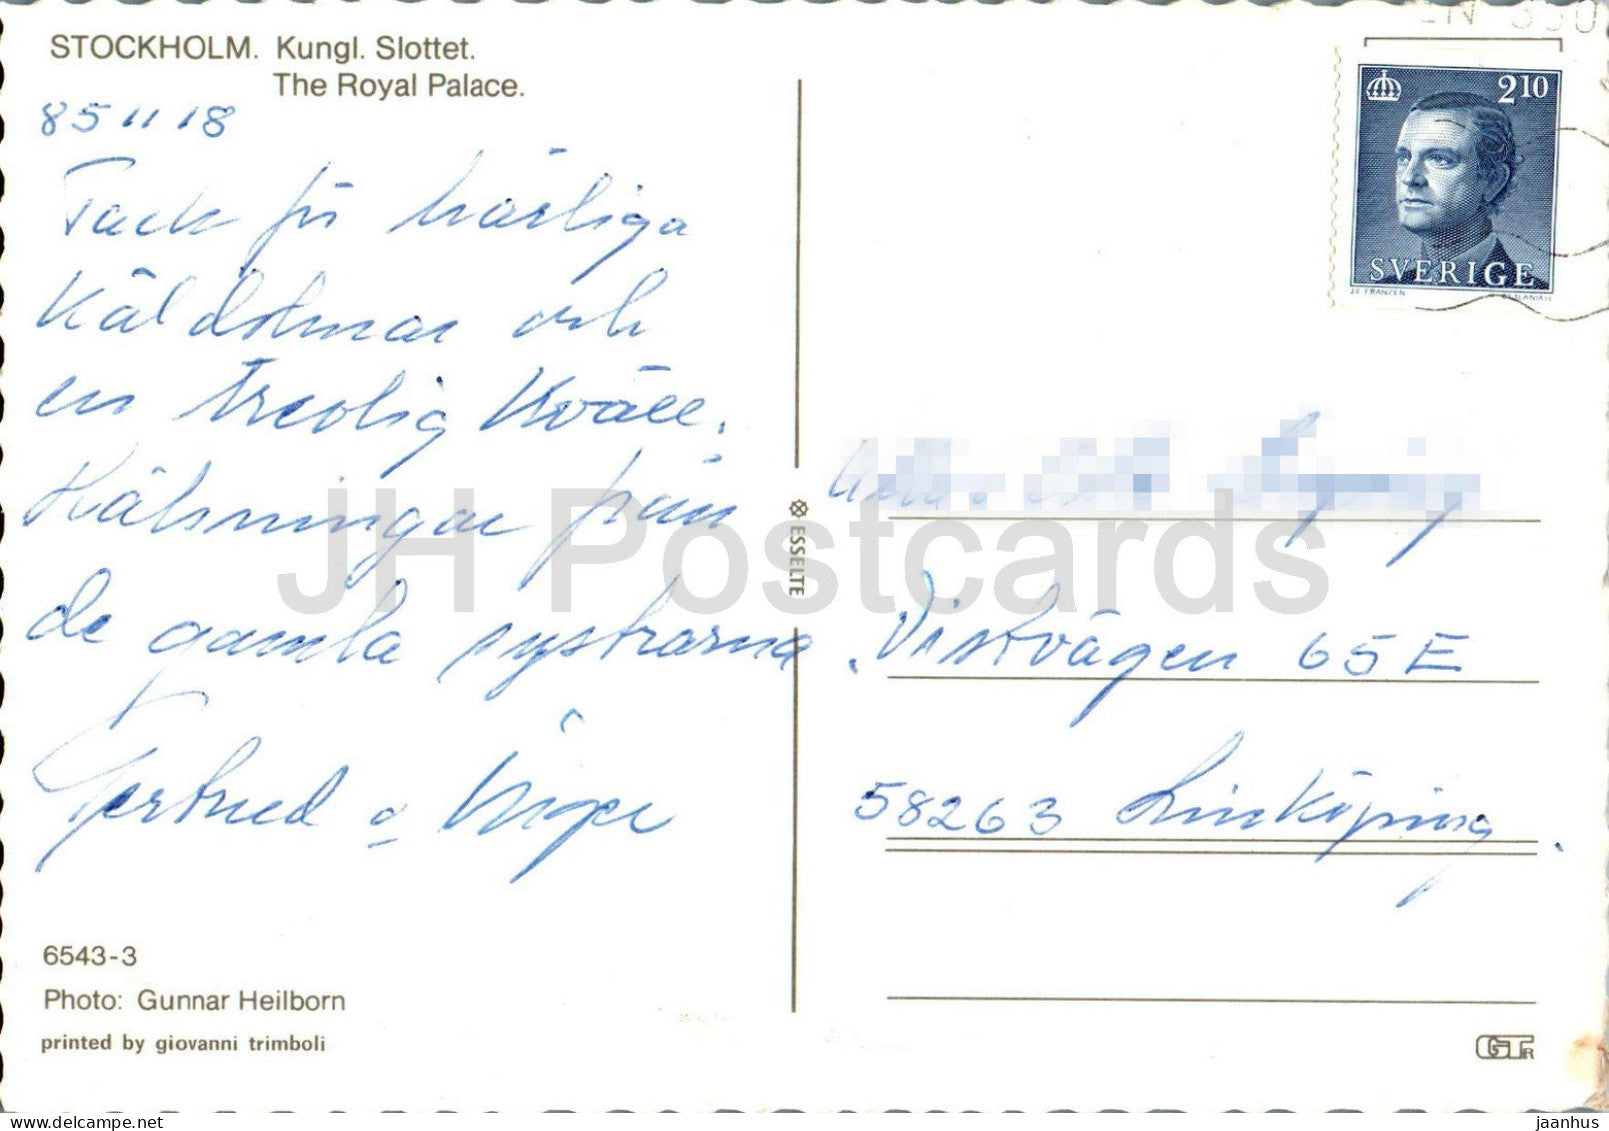 STOCKHOLM. Kungl. Slottet.
The Royal Palace.
85 11 18
Tack för härliga
Kåldolmar och
en trevlig Kväll.
Hälsningar från
de gamla systrarna
Gertrud o Inger
6543-3
Photo: Gunnar Heilborn
printed by giovanni trimboli
ESSELTE
JH Postcards
2 10
SVERIGE
Vistvägen 65 E
58263 Linköping.
GT
jaanhus